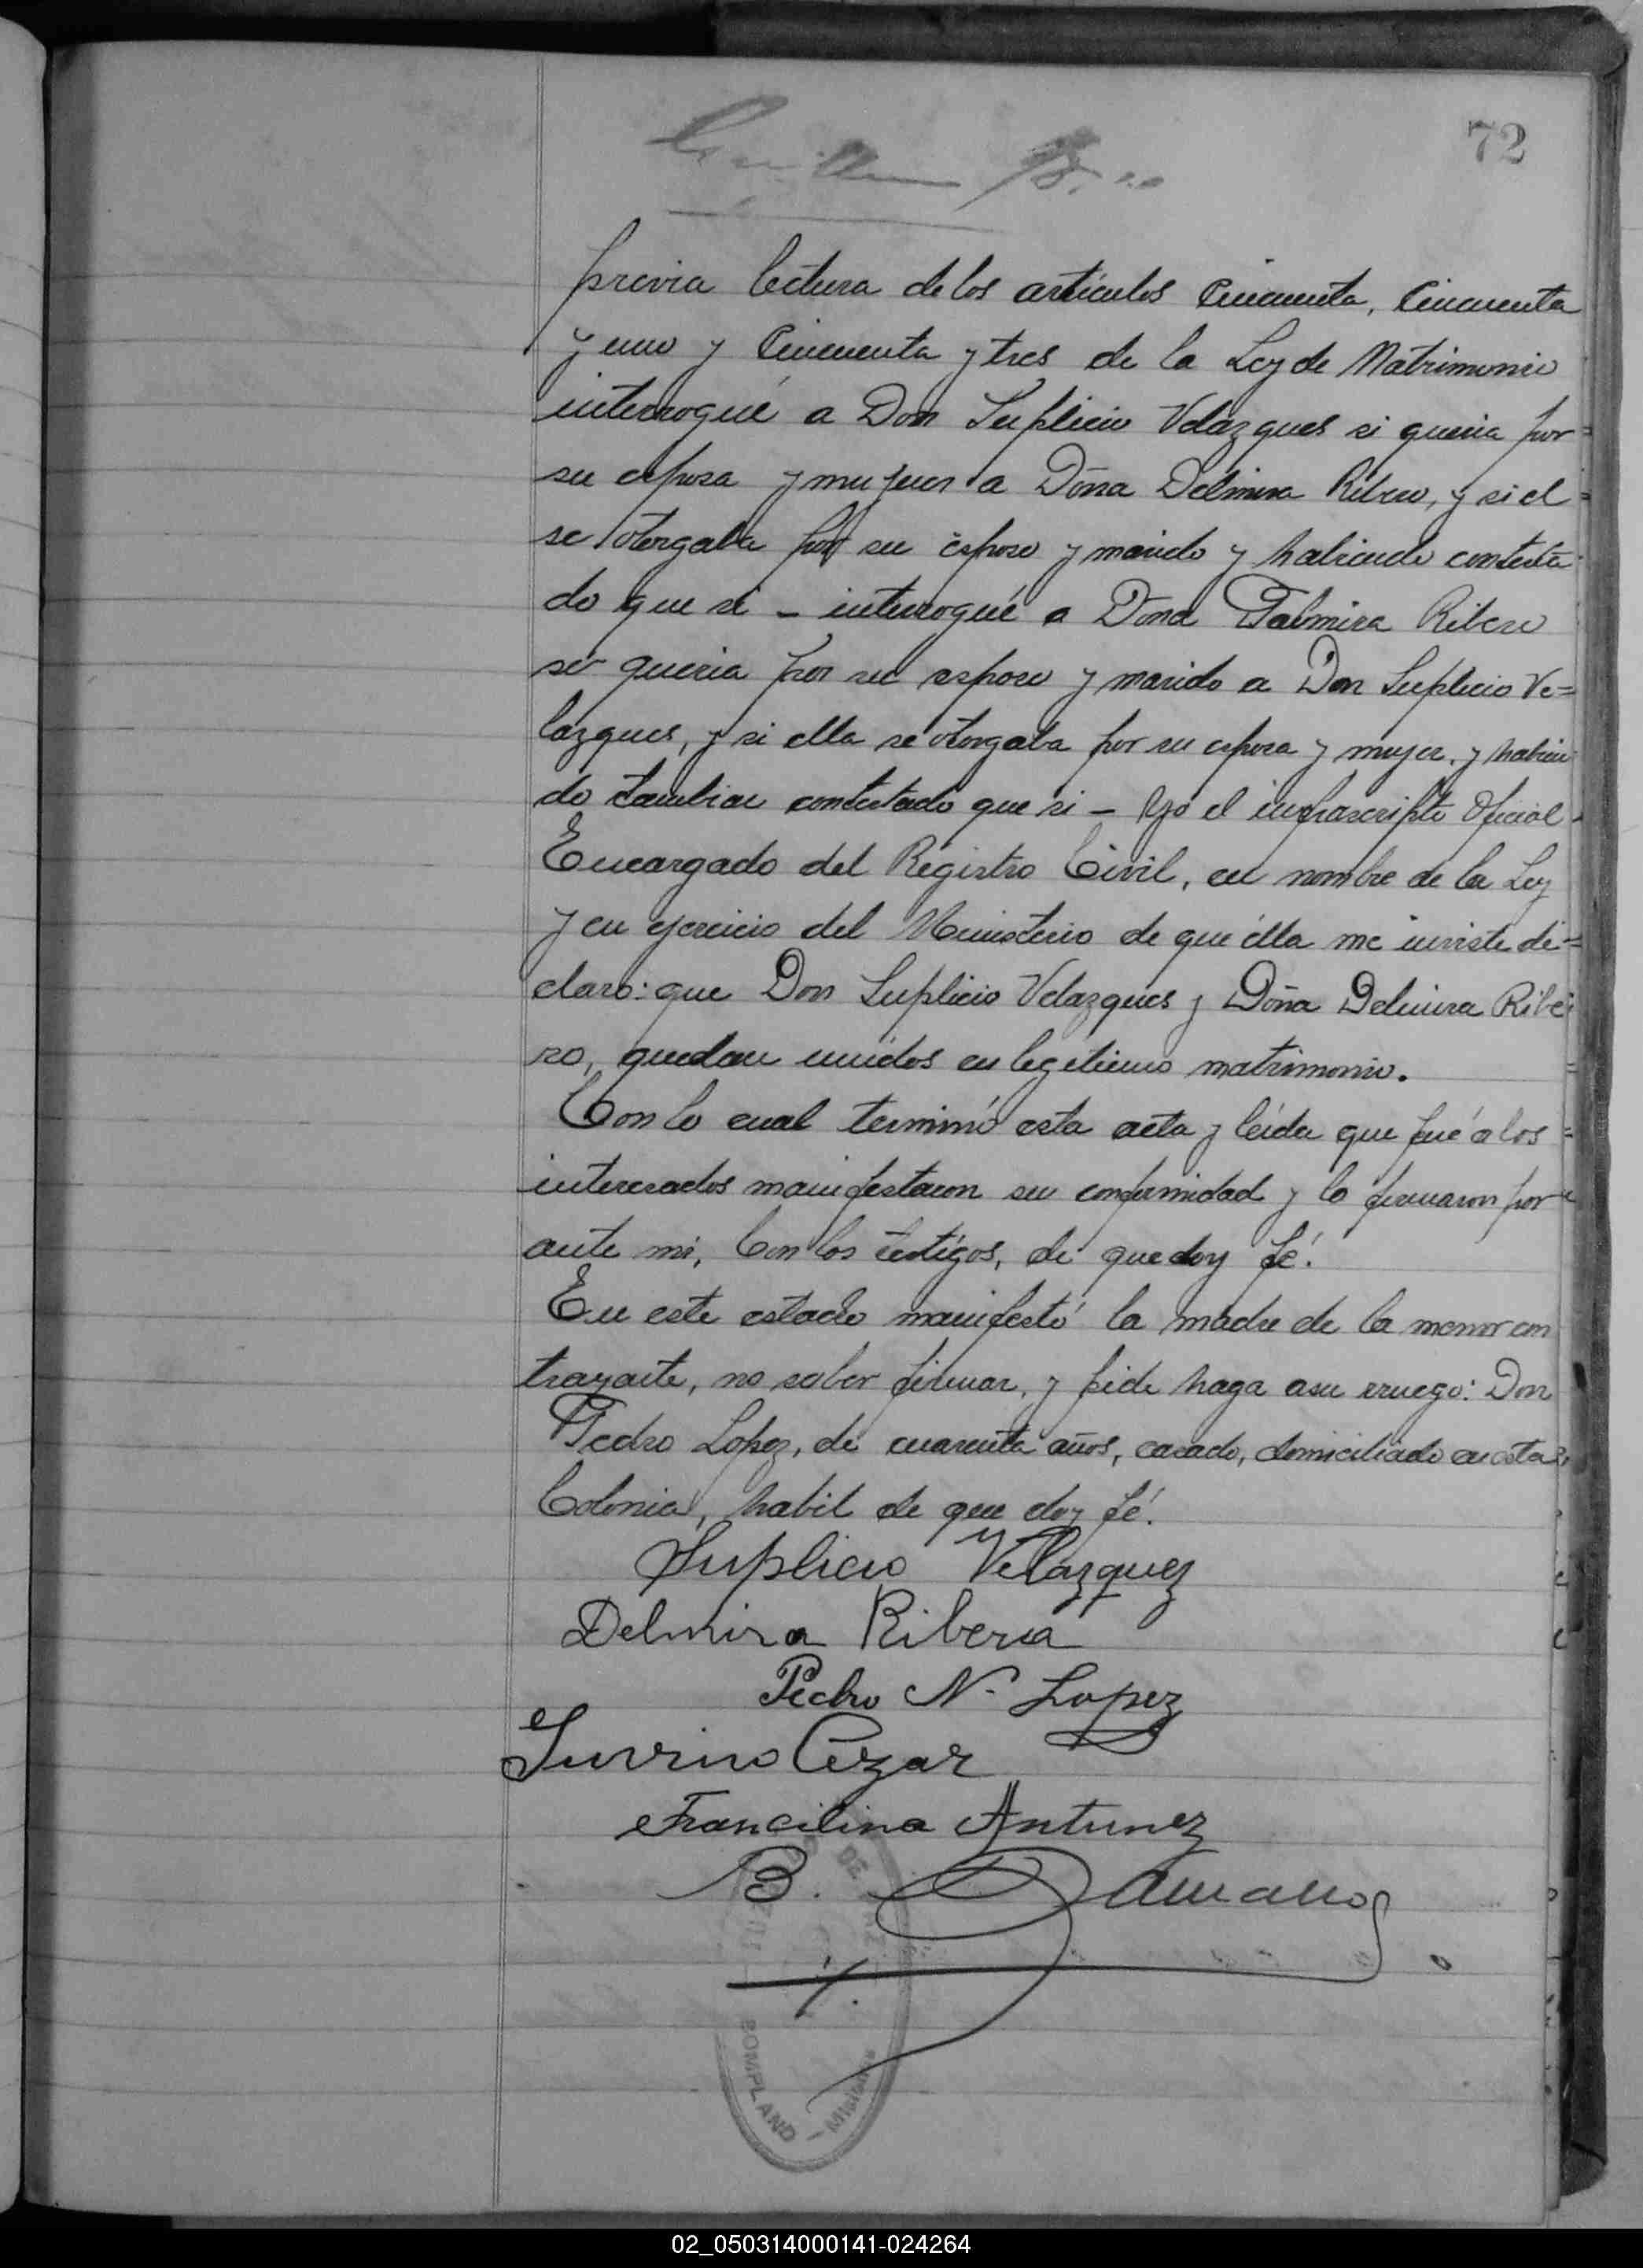 72
previa lectura de los artículos Cincuenta, Cincuenta
y uno y Cincuenta y tres de la Ley de Matrimonio
interrogué a Don Suplicio Velazques si queria por
su esposa y mujer a Doña Delmira Ribero, y si el
se otorgaba por su esposo y marido y habiendo contesta
do que si - interrogué a Doña Palmira Ribero
si queria por su esposo y marido a Don Suplicio Ve=
lazques, y si ella se otorgaba por su esposa y mujer, y habien
do tambien contestado que si - Yo el infrascripto Oficial
Encargado del Registro Civil, en nombre de la Ley
y en ejercicio del Ministerio de que élla me inviste de=
claro: que Don Suplicio Velazques y Doña Delmira Ribe
ro, quedan unidos en legitimo matrimonio.
Con lo cual terminó esta acta y leída que fué a los
interesados manifestaron su conformidad y la firmaron por
ante mi, Con los testigos, de que doy fé.
En este estado manifestó la madre de la menor con
trayante, no saber firmar, y pide haga a su ruego: Don
Pedro Lopez, de cuarenta años, casado, domiciliado en esta
Colonia, habil de que doy fé.
Suplicio Velazquez
Delmira Ribera
Pedro N. Lopez
Cezar
Francilina Antunez
B.
BOMPLAND - Misiones
02_050314000141-024264